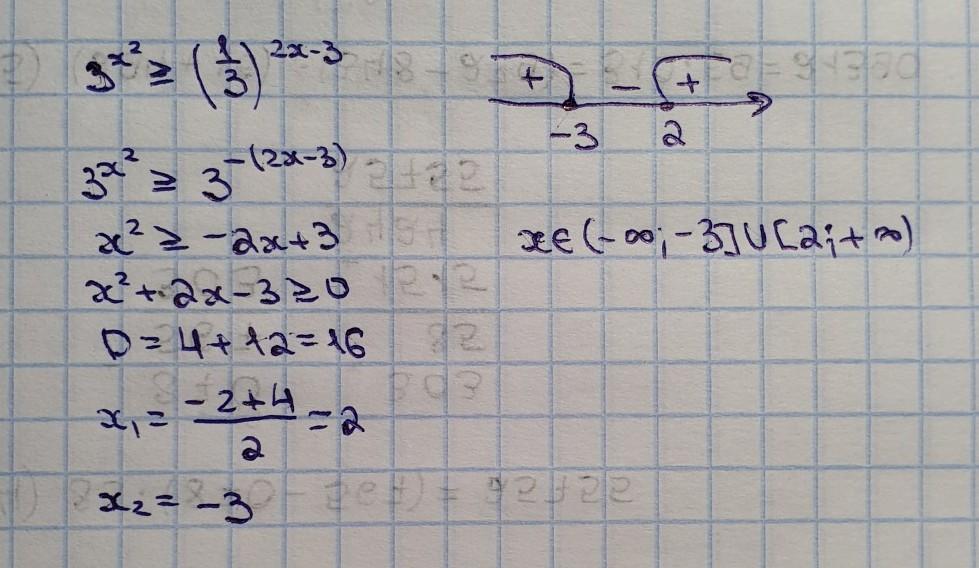 3^{x^2} ≥ (1/3)^{2x-3}
3^{x^2} ≥ 3^{-(2x-3)}
x² ≥ -2x+3
x²+2x-3≥0
D = 4+12=16
x₁ = (-2+4)/2 = 2
x₂ = -3
+ - +
-3 2
x∈(-∞;-3]∪[2;+∞)